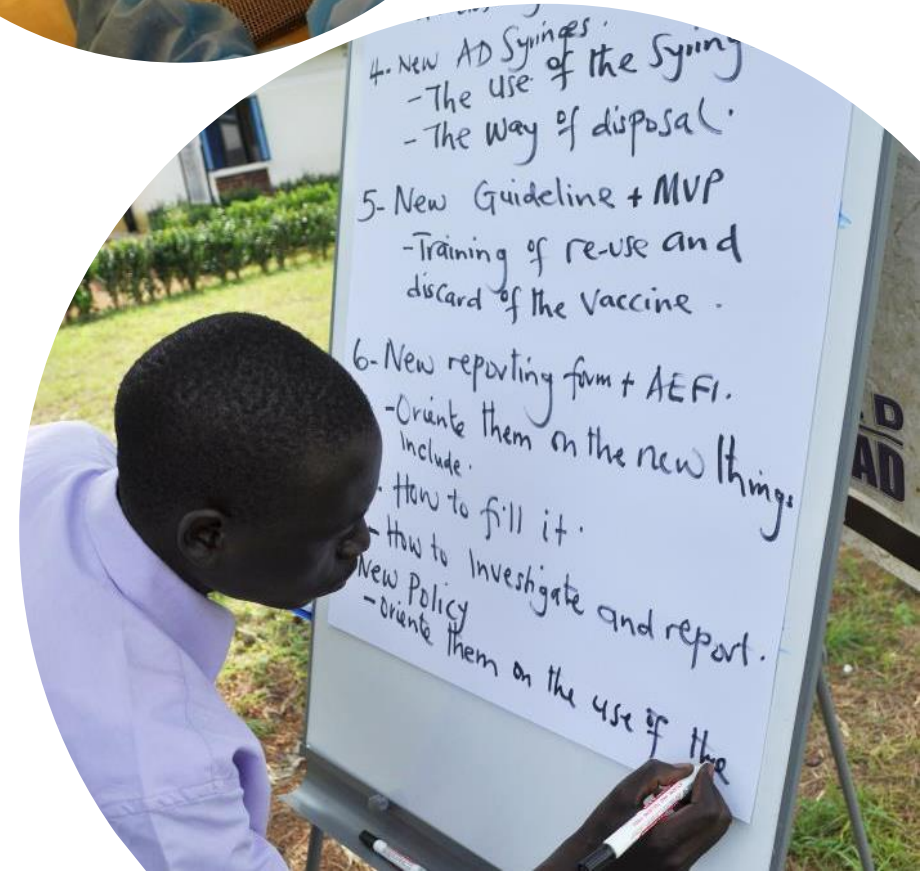 4. New AD Syringes.
- The use of the Syring
- The way of disposal.
5- New Guideline + MVP
- Training of re-use and
discard of the vaccine .
6- New reporting form + AEFI.
- Oriente them on the new things
Include.
- How to fill it.
- How to Investigate and report.
New Policy
- oriente them on the use of the
D
AD